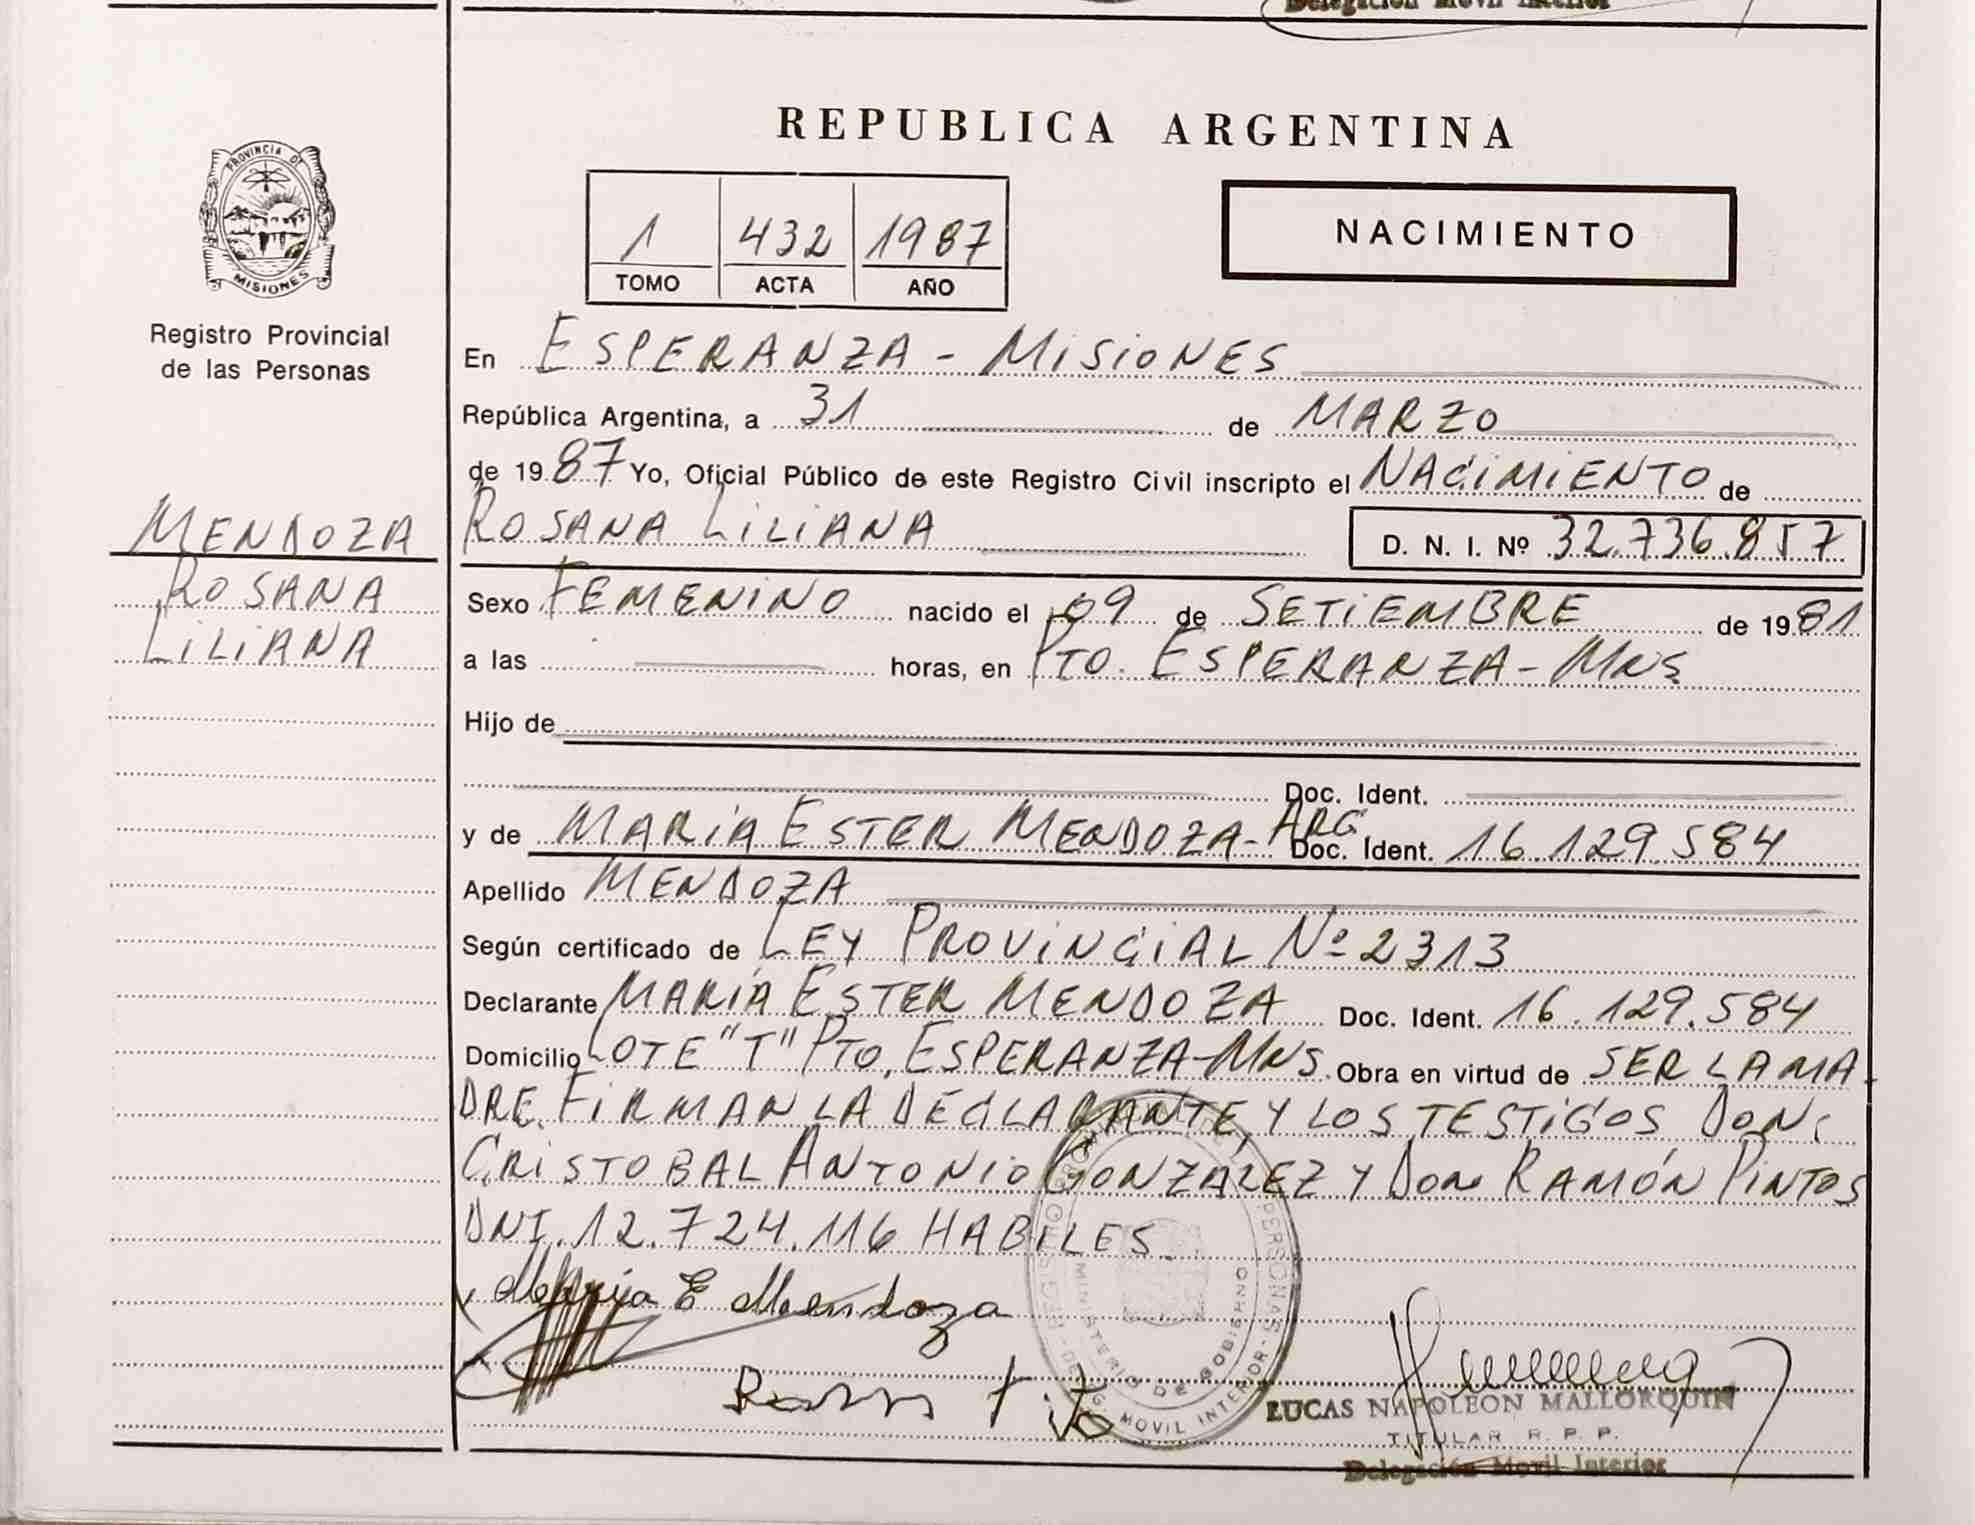 Delegación Movil Interior
REPUBLICA ARGENTINA
PROVINCIA DE
MISIONES
Registro Provincial
de las Personas
1 432 1987
TOMO ACTA AÑO
NACIMIENTO
En ESPERANZA - MISIONES
República Argentina, a 31 de MARZO
de 1987 Yo, Oficial Público de este Registro Civil inscripto el NACIMIENTO de
MENDOZA
ROSANA
LILIANA
ROSANA LILIANA D. N. I. Nº 32.736.857
Sexo FEMENINO nacido el 09 de SETIEMBRE de 1981
a las horas, en PTO. ESPERANZA - MNS
Hijo de
Doc. Ident.
y de MARIA ESTER MENDOZA - ARG Doc. Ident. 16.129.584
Apellido MENDOZA
Según certificado de LEY PROVINCIAL Nº 2313
Declarante MARIA ESTER MENDOZA Doc. Ident. 16.129.584
Domicilio LOTE "T" PTO. ESPERANZA - MNS. Obra en virtud de SER LA MA-
DRE. FIRMAN LA DECLARANTE, Y LOS TESTIGOS DON:
CRISTOBAL ANTONIO GONZALEZ Y DON RAMÓN PINTOS
DNI. 12.724.116 HABILES
Maria E Mendoza
MINISTERIO DE GOBIERNO
MOVIL INTERIOR
LUCAS NAPOLEON MALLORQUIN
TITULAR R. P. P.
Delegación Movil Interior